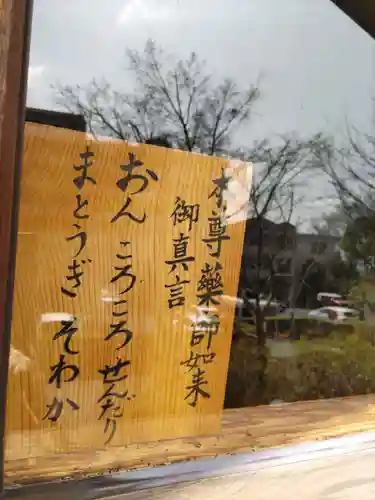 本尊藥師如来
御真言
おん ころころせんだり
まとうぎ そわか